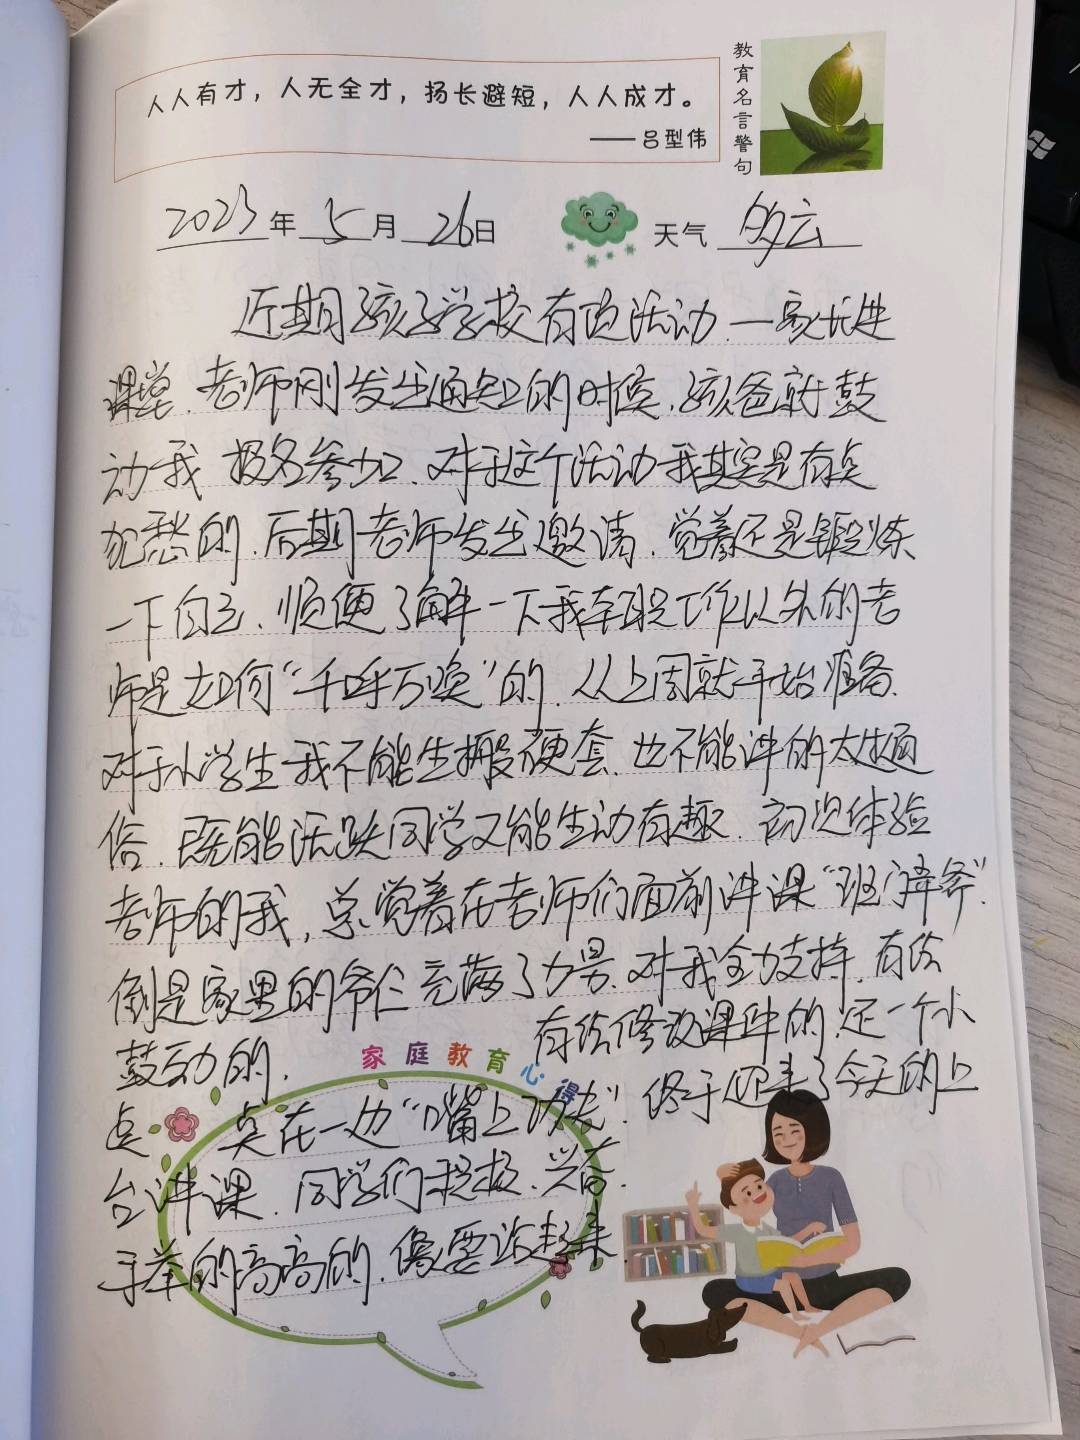 人人有才，人无全才，扬长避短，人人成才。
——吕型伟
教育名言警句
2023年 5月 26日 天气 多云
近期孩子学校有项活动——家长进
课堂。老师刚发出通知的时候，孩爸就鼓
动我 报名参加。对于这个活动我其实是有点
犯愁的，后期老师发出邀请，觉着还是锻炼
一下自己，顺便了解一下我本职工作以外的老
师是如何“千呼万唤”的，从上周就开始准备，
对于小学生我不能生搬硬套，也不能讲的太通
俗，既能活跃同学又能生动有趣，初次体验
老师的我，总觉着在老师们面前讲课“班门弄斧”，
倒是家里的爷仨充满了力男，对我全力支持，有给
鼓动的，
有给修改课件的，还一个小
家庭教育心得
点 点在一边“嘴上功夫”，终于迎来了今天的上
台讲课，同学们积极，兴奋，
手举的高高的，像要站起来